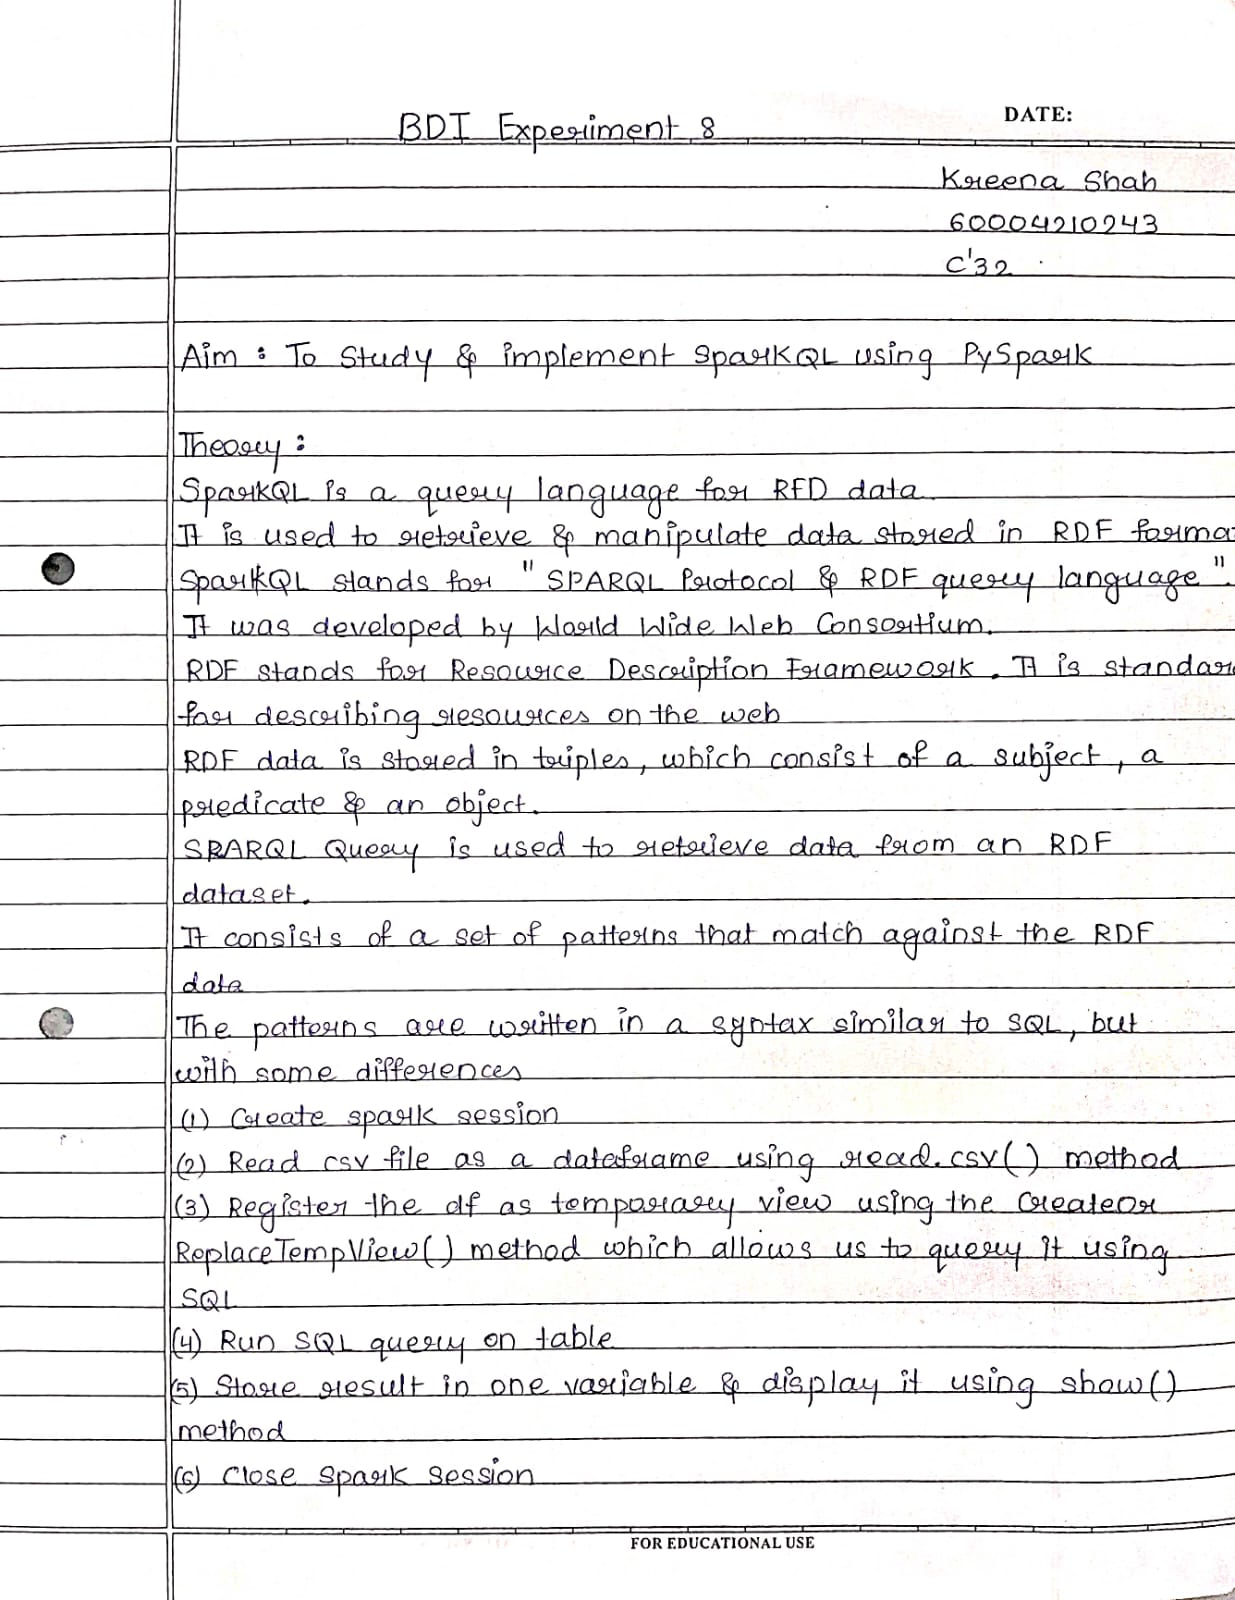 BDI Experiment 8
DATE:
Kreena Shah
60004210243
C'32
Aim : To Study & implement SparkQL using PySpark
Theory :
SparkQL is a query language for RFD data
It is used to retrieve & manipulate data stored in RDF forma
SparkQL stands for " SPARQL Protocol & RDF query language ".
It was developed by World Wide Web Consortium.
RDF stands for Resource Description Framework. It is standar
for describing resources on the web
RDF data is stored in triples, which consist of a subject, a
predicate & an object.
SPARQL Query is used to retrieve data from an RDF
dataset.
It consists of a set of patterns that match against the RDF
data
The patterns are written in a syntax similar to SQL, but
with some differences
(1) Create spark session
(2) Read csv file as a dataframe using read.csv() method
(3) Register the df as temporary view using the CreateOr
ReplaceTempView() method which allows us to query it using
SQL
(4) Run SQL query on table
(5) Store result in one variable & display it using show()
method
(6) Close Spark Session
FOR EDUCATIONAL USE